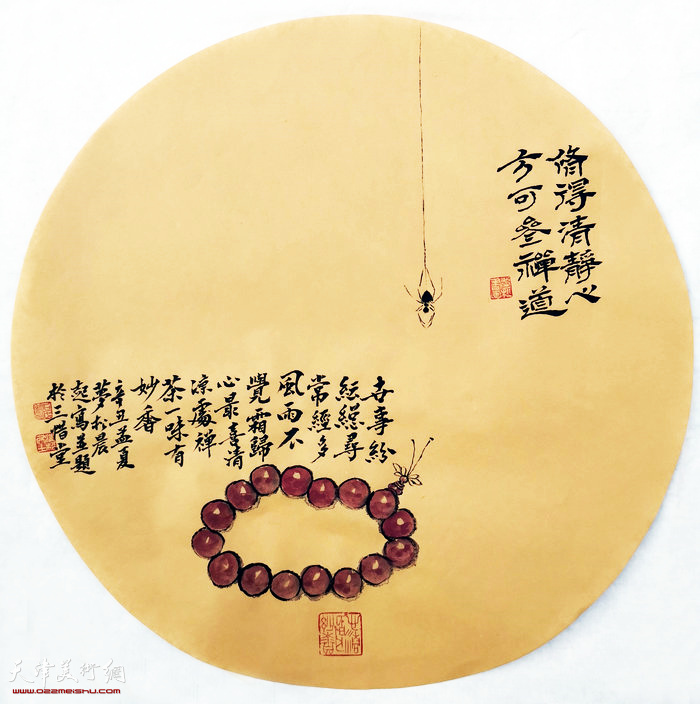 脩得清靜心
方可參禪道
世事紛
紜總尋
常經多
風雨不
覺霜歸
心最喜清
涼處禪
茶一味有
妙香
辛丑孟夏
夢松晨
起寫並題
於三惜堂
天津美術網
www.022meishu.com